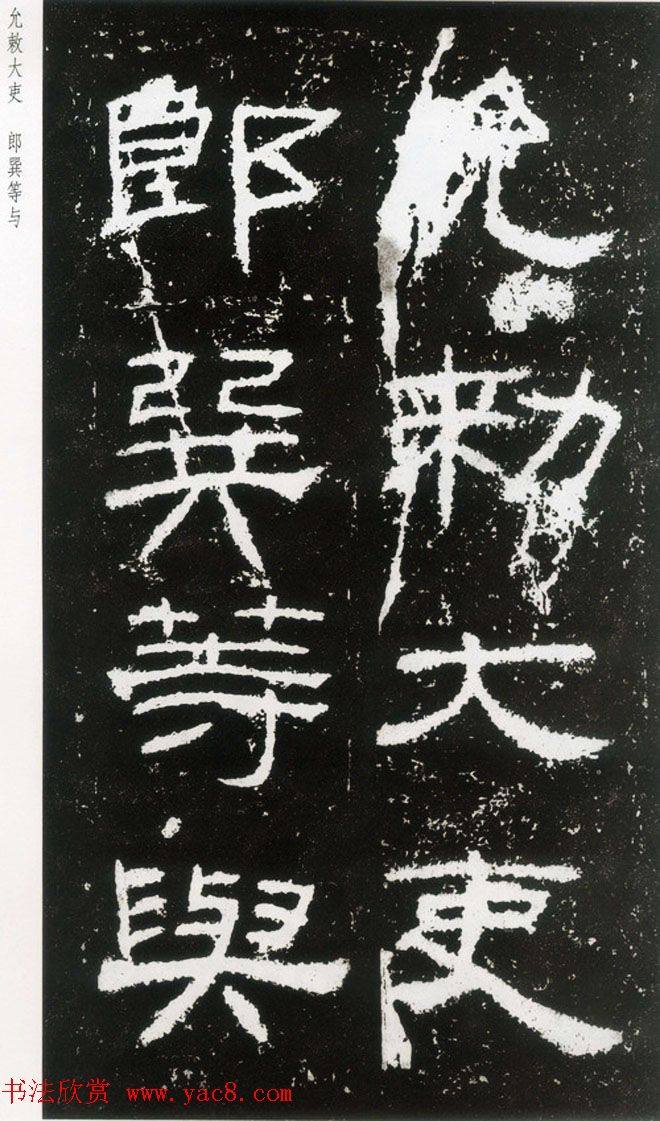 允敕大吏
郎巽等與
允敕大吏 郎巽等与
书法欣赏 www.yac8.com